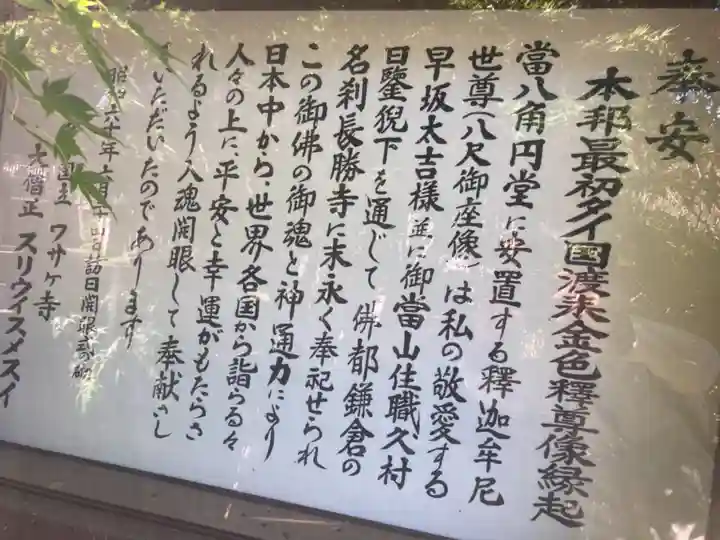 奉安
本邦最初タイ国渡来金色釋尊像縁起
當八角円堂に安置する釋迦牟尼
世尊(八尺御座像)は私の敬愛する
早坂太吉様並に御當山住職久村
日鑒猊下を通じて佛都鎌倉の
名刹長勝寺に末永く奉祀せられ
この御佛の御魂と神通力により
日本中から、世界各国から詣らる々
人々の上に、平安と幸運がもたらさ
れるよう入魂開眼して奉献さし
いただいたのであります
昭和六十年六月 訪日開眼
国王ワサケ寺
大僧正 スリウイスメスイ